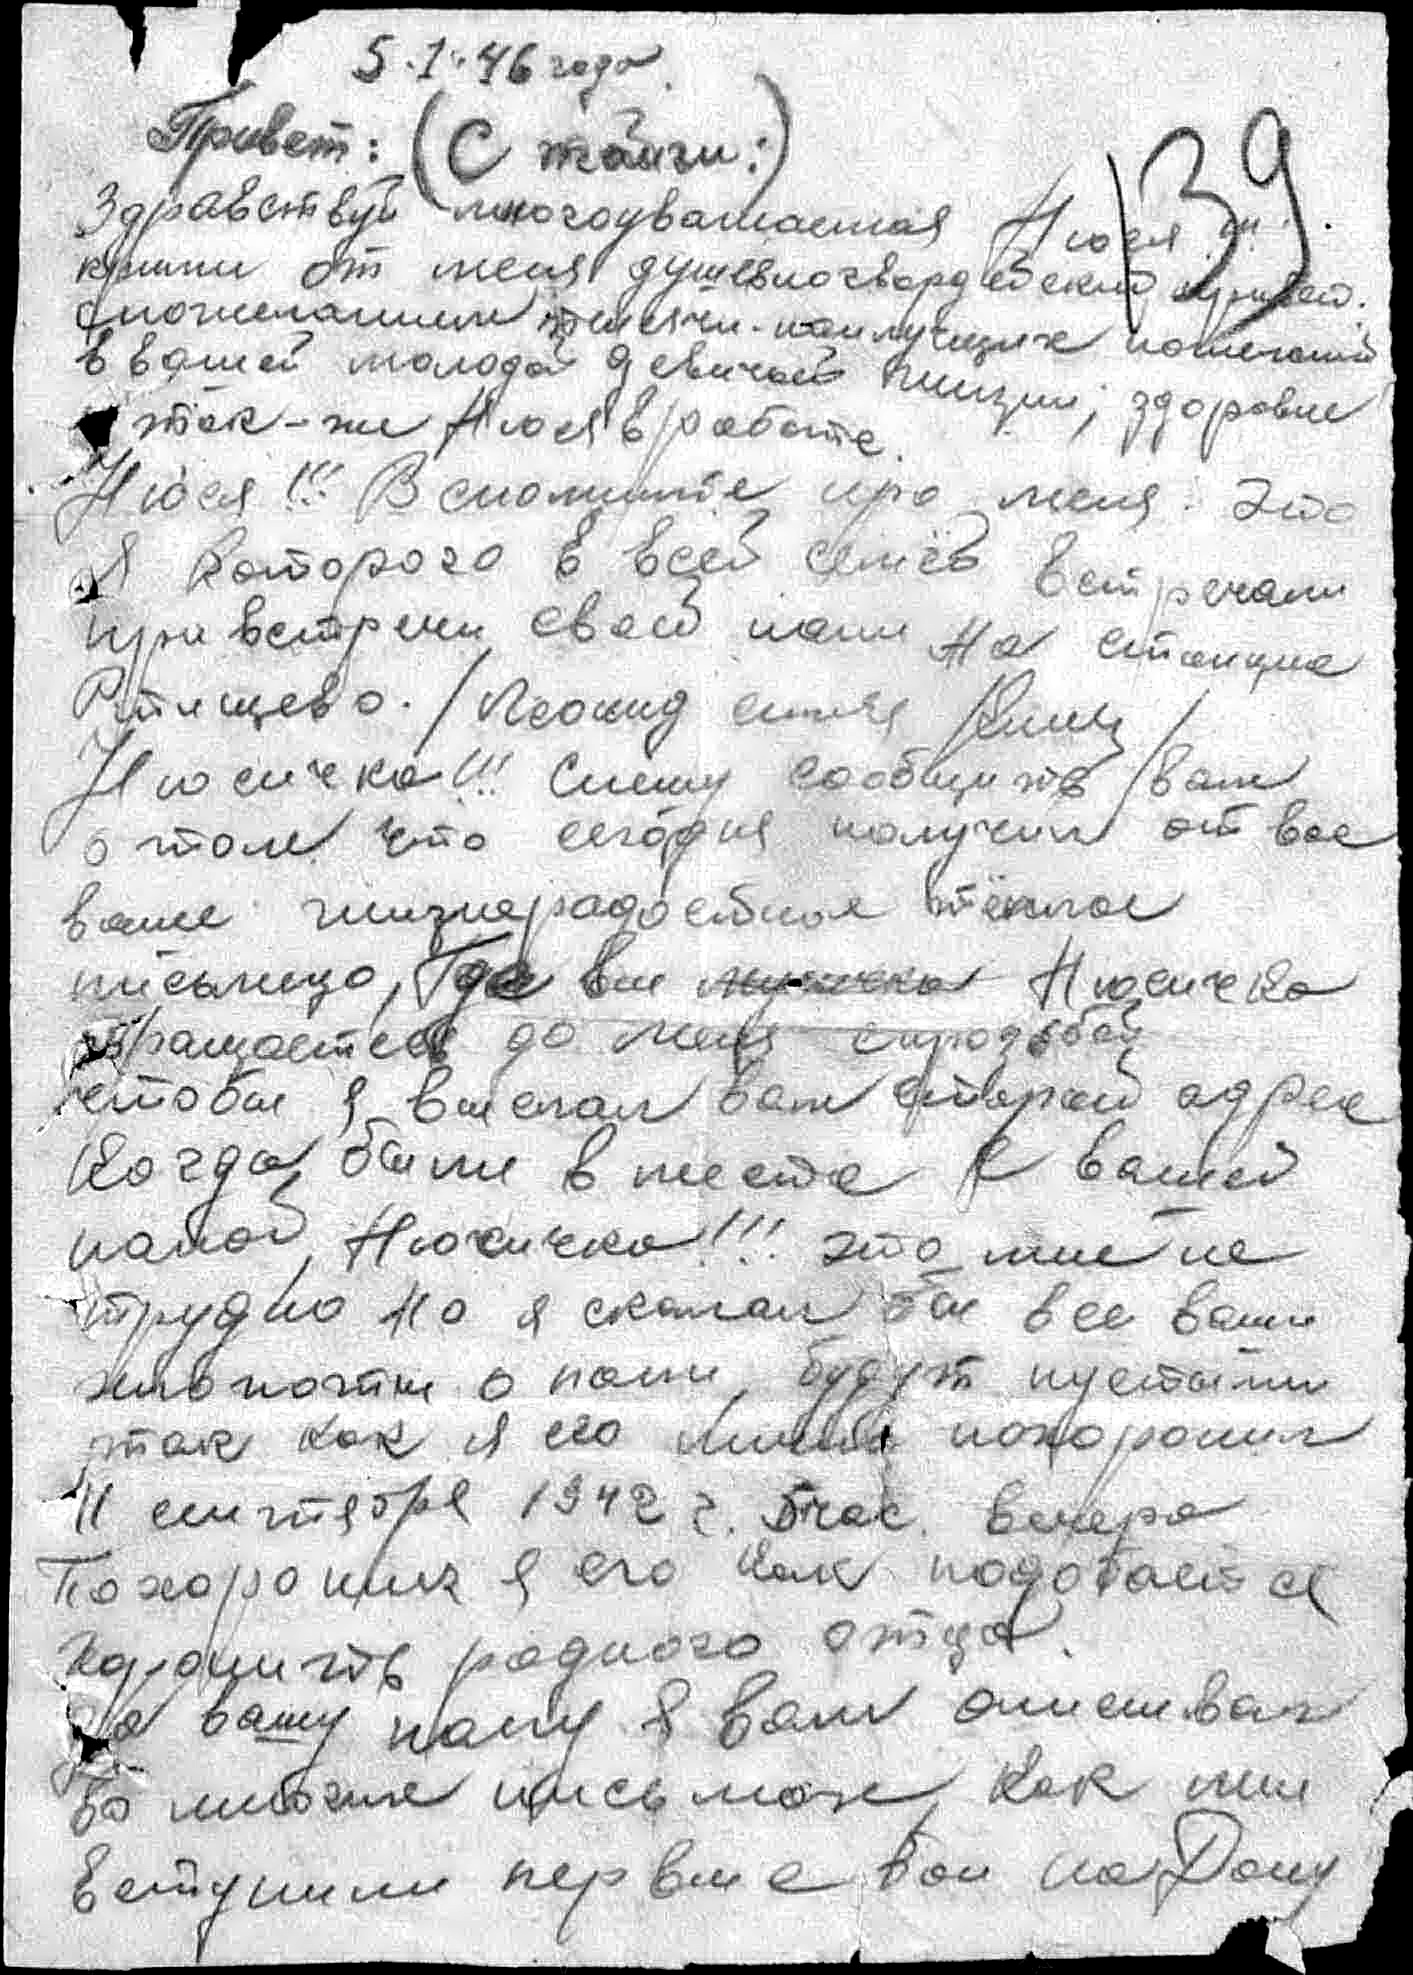 5.1.46 года.
Привет: (С тайги:)
139
Здравствуй многоуважаемая Нюся!!!
от меня душевногвардейский привет.
спожеланием тысячи наилучших пожеланий
в вашей молодой девичей жизни, здоровие
так-же Нюся в работе.
Нюся!!! Вспомните про меня. Это
я которого в всей семьёв встречали
при встречи своей папи на станцие
Ртищево. /Леонид
Нюсичка!!! Спешу сообщить вам
о том что сегодня получил от вас
ваше жизнерадостное тёплое
письмецо, Где вы Нюсичка
обращаетесь до меня спрозьбой
чтобы я выслал вам старый адрес
когда были в месте с вашей
папой, Нюсичка!!! это мне не
трудно но я сказал бы все ваши
о папи, будут пустыми
так как я его лично похоронил
11 сентября 1942 г. 5 час. вечера
Похоронил я его как подобается
хоронить родного отца.
За вашу папу я вам описывал
во многих письмах, как мы
вступили первые бои на Дону